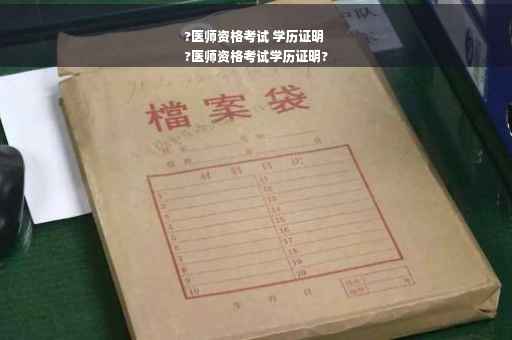 ?医师资格考试 学历证明
?医师资格考试学历证明?
檔案袋
材料目次
1 11
2 12
3 13
4 14
5 15
6 16
7 17
8 18
9 19
10 20
年 月 日